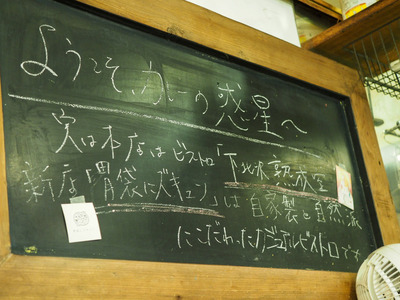 ようこそ、カレーの惑星へ
実は本店はビストロ「下北沢熟成室」
新店「胃袋にズキュン」は自家製と自然派
にこだわったカジュアルビストロです